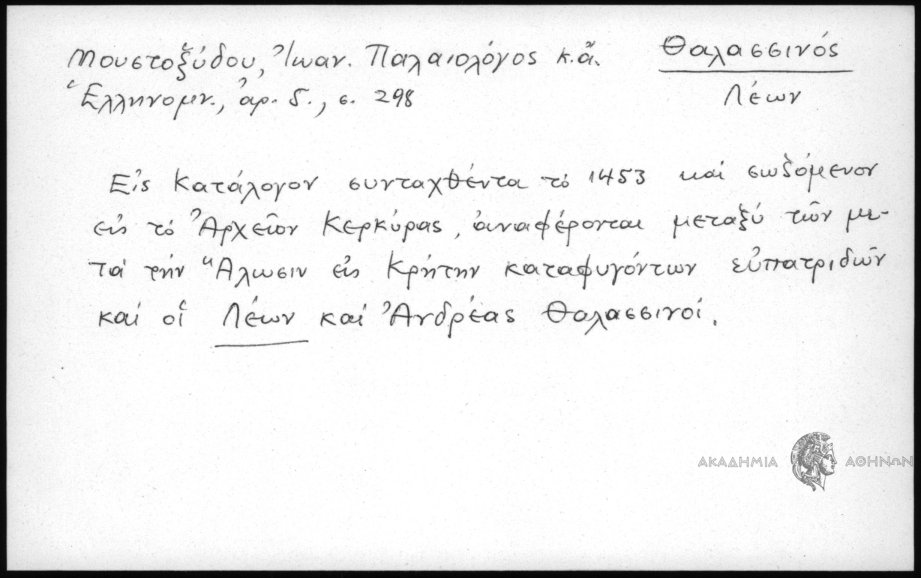 Μουστοξύδου, Ἰωαν. Παλαιολόγος κ.ἄ.
Ἑλληνομν., ἀρ. 5., σ. 298
Θαλασσινός
Λέων
Εἰς κατάλογον συνταχθέντα τὸ 1453 καὶ σωζόμενον
εἰς τὸ Ἀρχεῖον Κερκύρας, ἀναφέρονται μεταξὺ τῶν με-
τὰ τὴν Ἅλωσιν εἰς Κρήτην καταφυγόντων εὐπατριδῶν
καὶ οἱ Λέων καὶ Ἀνδρέας Θαλασσινοί.
ΑΚΑΔΗΜΙΑ ΑΘΗΝΩΝ